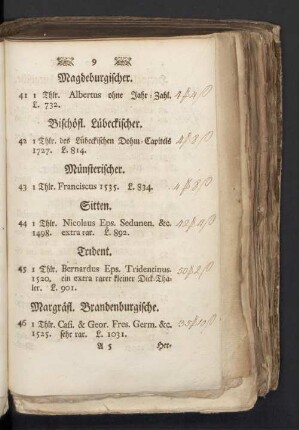 9
Magdeburgischer.
41 1 Thlr. Albertus ohne Jahr-Zahl.
L. 732.
Bischöfl. Lübeckischer.
42 1 Thlr. des Lübeckischen Dohm-Capitels
1727. L. 814.
Münsterischer.
43 1 Thlr. Franciscus 1535. L. 834.
Sitten.
44 1 Thlr. Nicolaus Eps. Sedunen. &c.
1498. extra rar. L. 892.
Trident.
45 1 Thlr. Bernardus Eps. Tridentinus.
1520. ein extra rarer kleiner Dick-Tha-
ler. L. 901.
Margräfl. Brandenburgische.
46 1 Thlr. Casi. & Geor. Fres. Germ. &c.
1525. sehr rar. L. 1031.
A 5 Her-